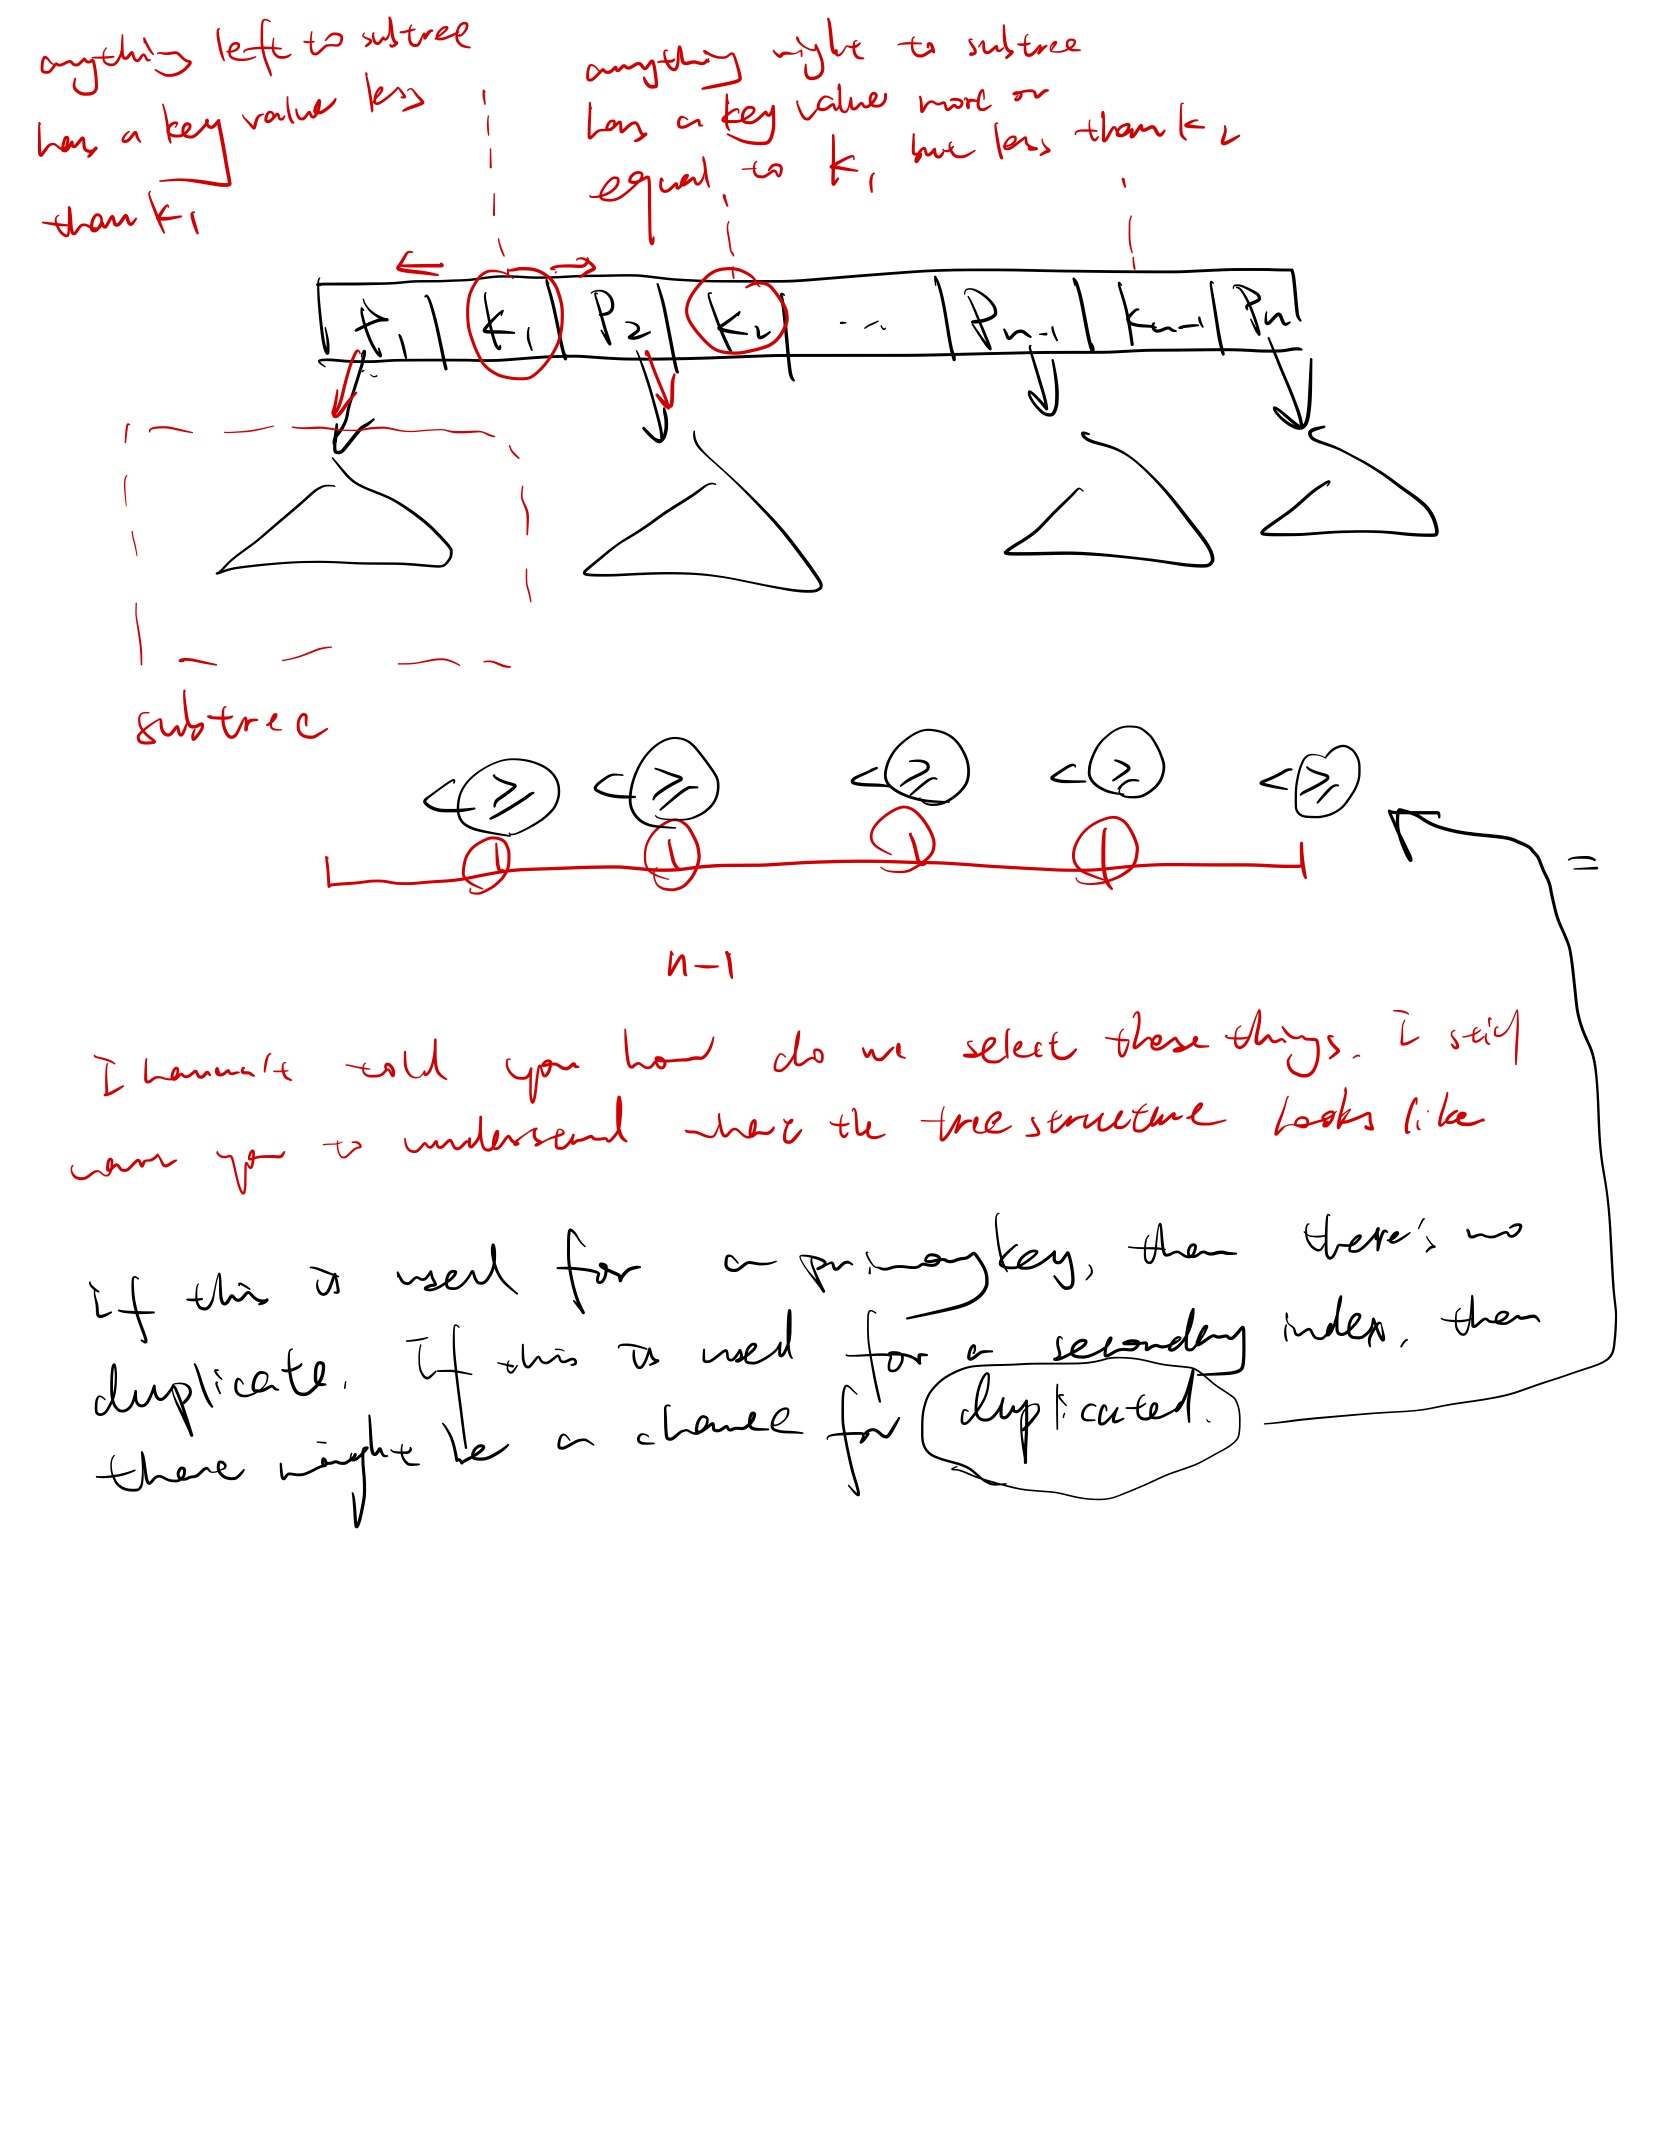 anything left to subtree
has a key value less
than k1
anything right to subtree
has a key value more or
equal to k1 but less than k2
P1 k1 P2 k2 ... Pn-1 kn-1 Pn
subtree
< ≥ < ≥ < ≥ < ≥ < ≥
=
n-1
I haven't told you how do we select these things. I still
want you to understand what the tree structure looks like
if this is used for a primary key, then there's no
duplicate. If this is used for a secondary index, then
there might be a chance for duplicated.